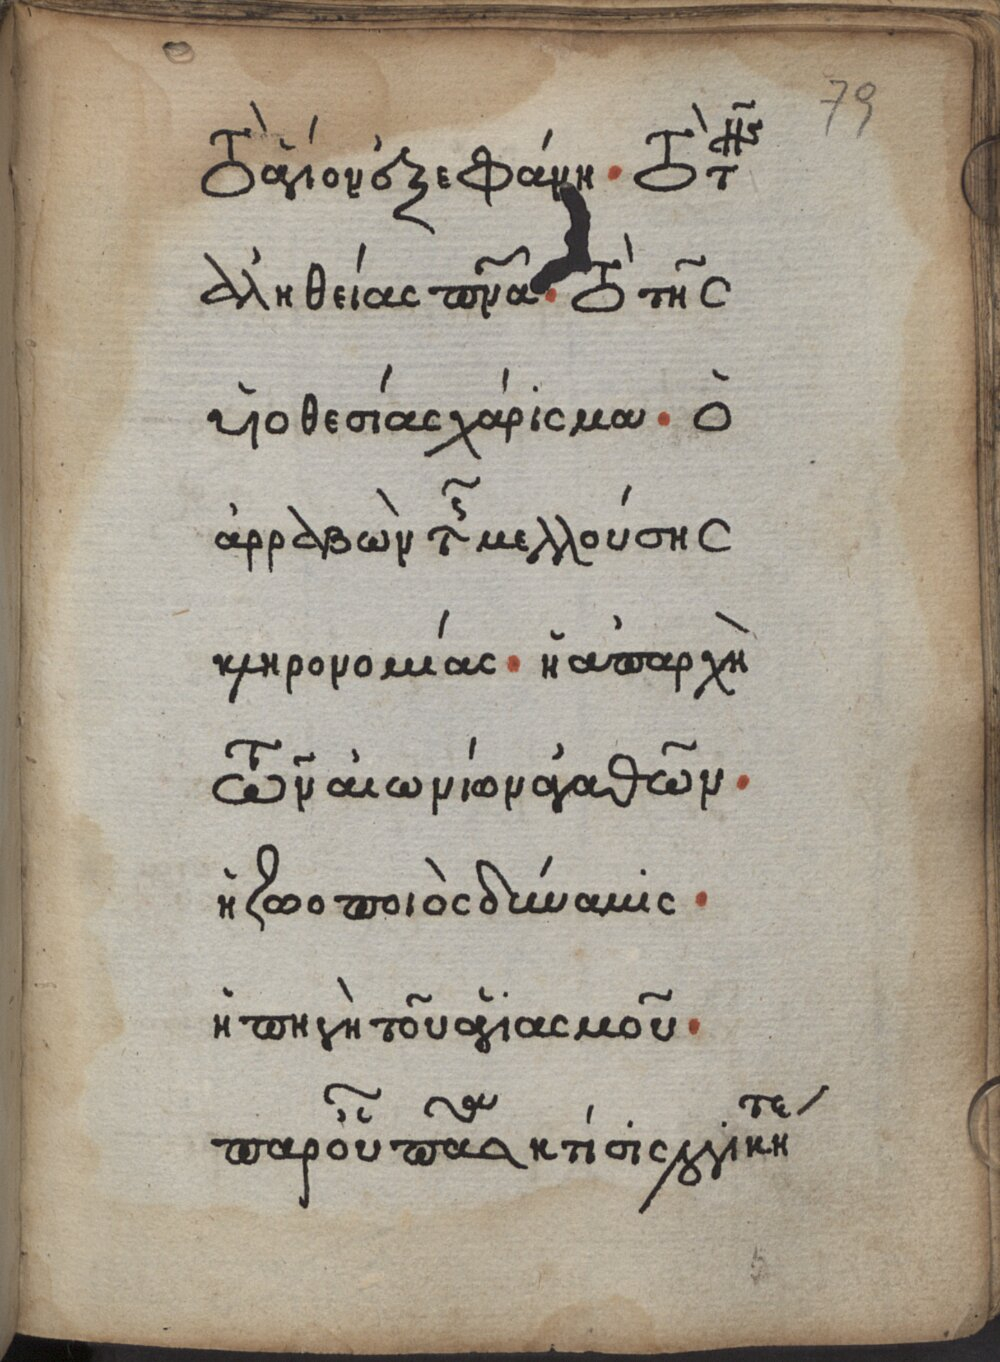 79
Τὸ ἅγιον ἐξεφάνη· Τὸ τῆς
ἀληθείας πν̅α· Τὸ τῆς
υἱοθεσίας χάρισμα· ὁ
ἀρραβὼν τῆς μελλούσης
κληρονομίας· ἡ ἀπαρχὴ
τῶν αἰωνίων ἀγαθῶν·
ἡ ζωοποιὸς δύναμις·
ἡ πηγὴ τοῦ ἁγιασμοῦ·
παρ οὗ πᾶσα κτίσις λογικὴ τε